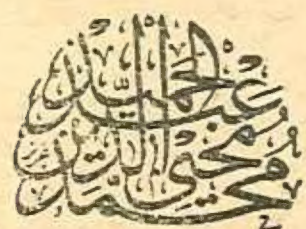 محمد محيي الدين عبد الحميد